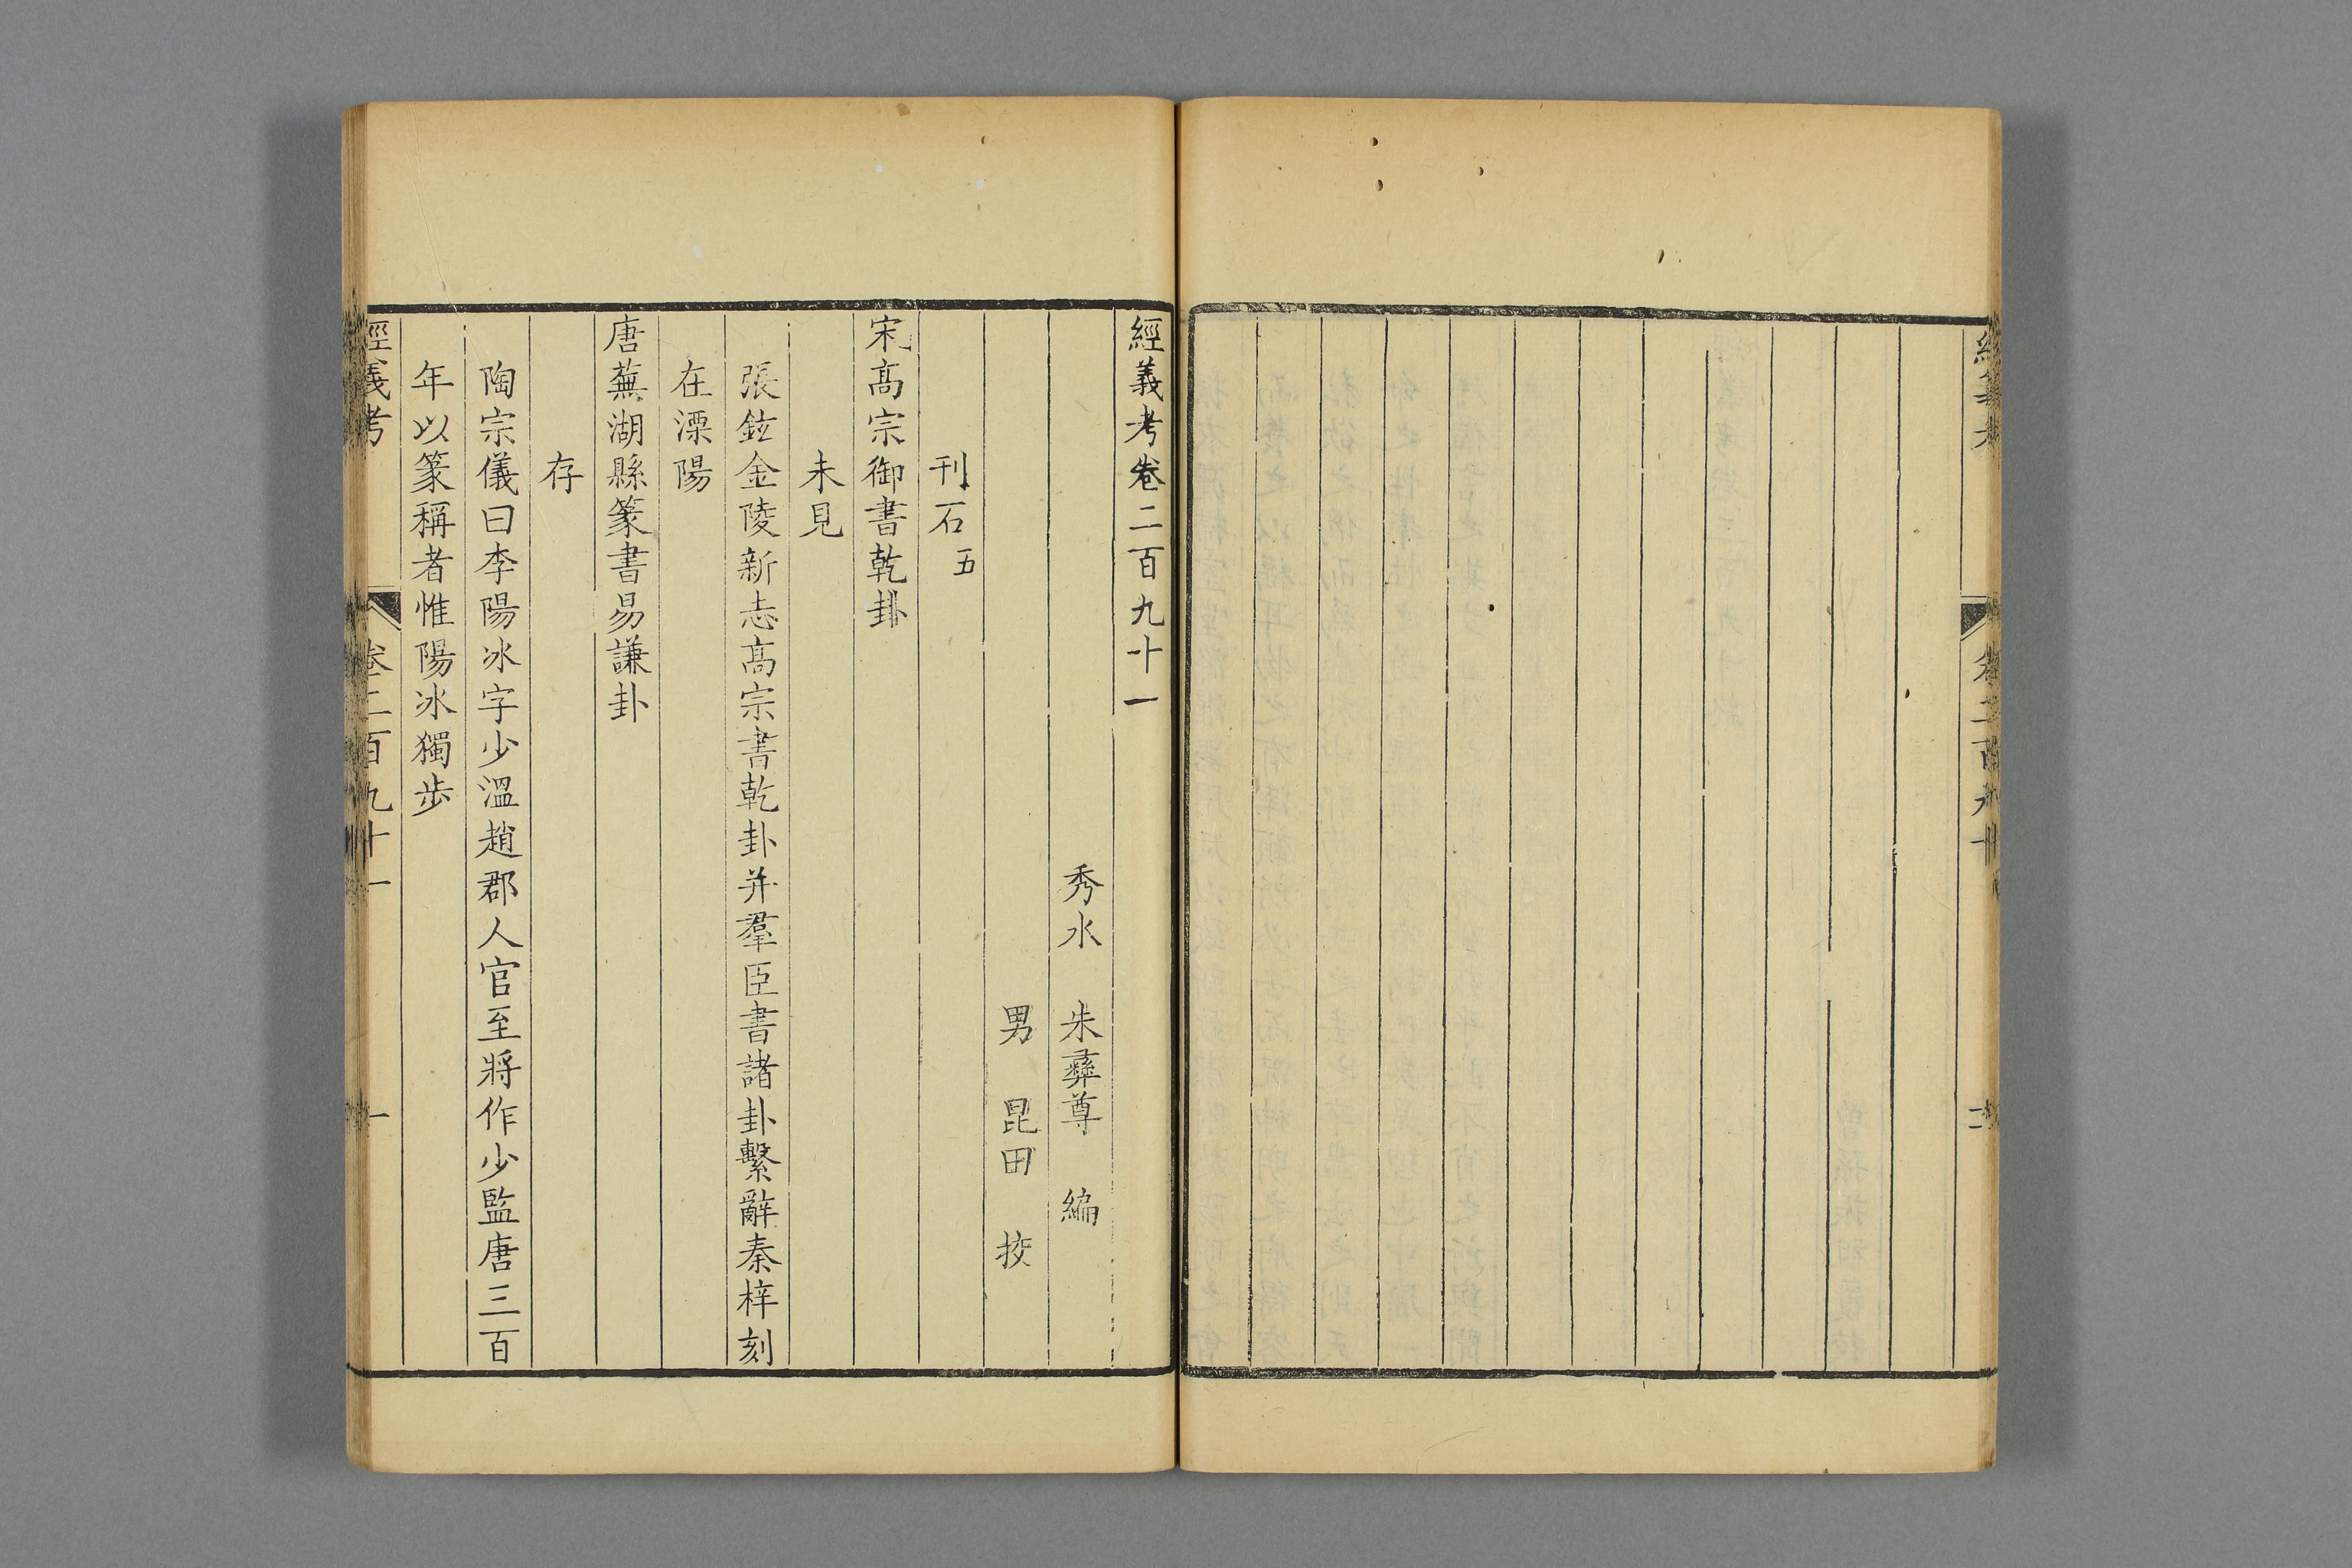 經義考卷二百九十一
秀水 朱彝尊 編
男 昆田 挍
刊石五
宋高宗御書乾卦
未見
張鉉金陵新志高宗書乾卦并羣臣書諸卦繫辭秦梓刻
在溧陽
唐蕪湖縣篆書易謙卦
存
陶宗儀曰李陽冰字少溫趙郡人官至將作少監唐三百
年以篆稱者惟陽冰獨步
經義考 卷二百九十一 一